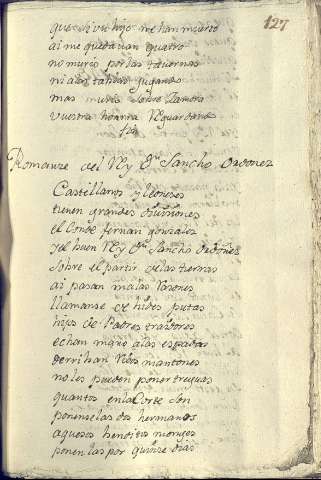 127
que si un hijo me han muerto
ai me quedauan quatro
no murio por las tauernas
ni a las tablas jugando
mas murio sobre Zamora
vuestra honrra Resguardando
fin
Romanze del Rey Dn Sancho Ordoñez
Castellanos y leoneses
tienen grandes diuisiones
el Conde fernan gonzales
y el buen Rey Dn Sancho ordoñez
sobre el partir de las tierras
ai pasan malas rasones
llamanse de hides putas
hijos de Padres traidores
echan mano a las espadas
derriban Ricos mantones
no les pueden poner treguas
quantos en la Corte son
ponenselas dos hermanos
aquesos benditos monjes
ponen las por quinze dias